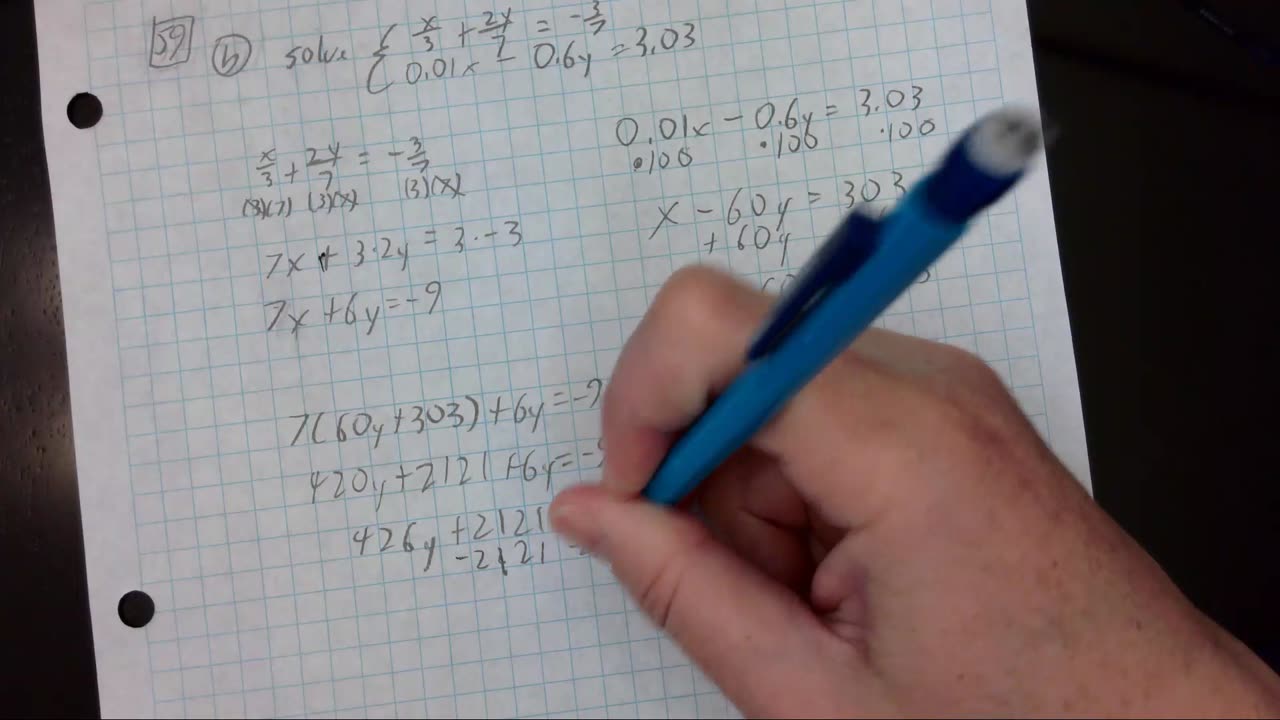 59 b solve { x/3 + 2y/7 = -3/7
0.01x - 0.6y = 3.03
x/3 + 2y/7 = -3/7
(3)(7) (3)(7) (3)(7)
7x + 3·2y = 3·-3
7x + 6y = -9
0.01x - 0.6y = 3.03
·100 ·100 ·100
x - 60y = 303
+ 60y
7(60y + 303) + 6y = -9
420y + 2121 + 6y = -9
426y + 2121
-2121